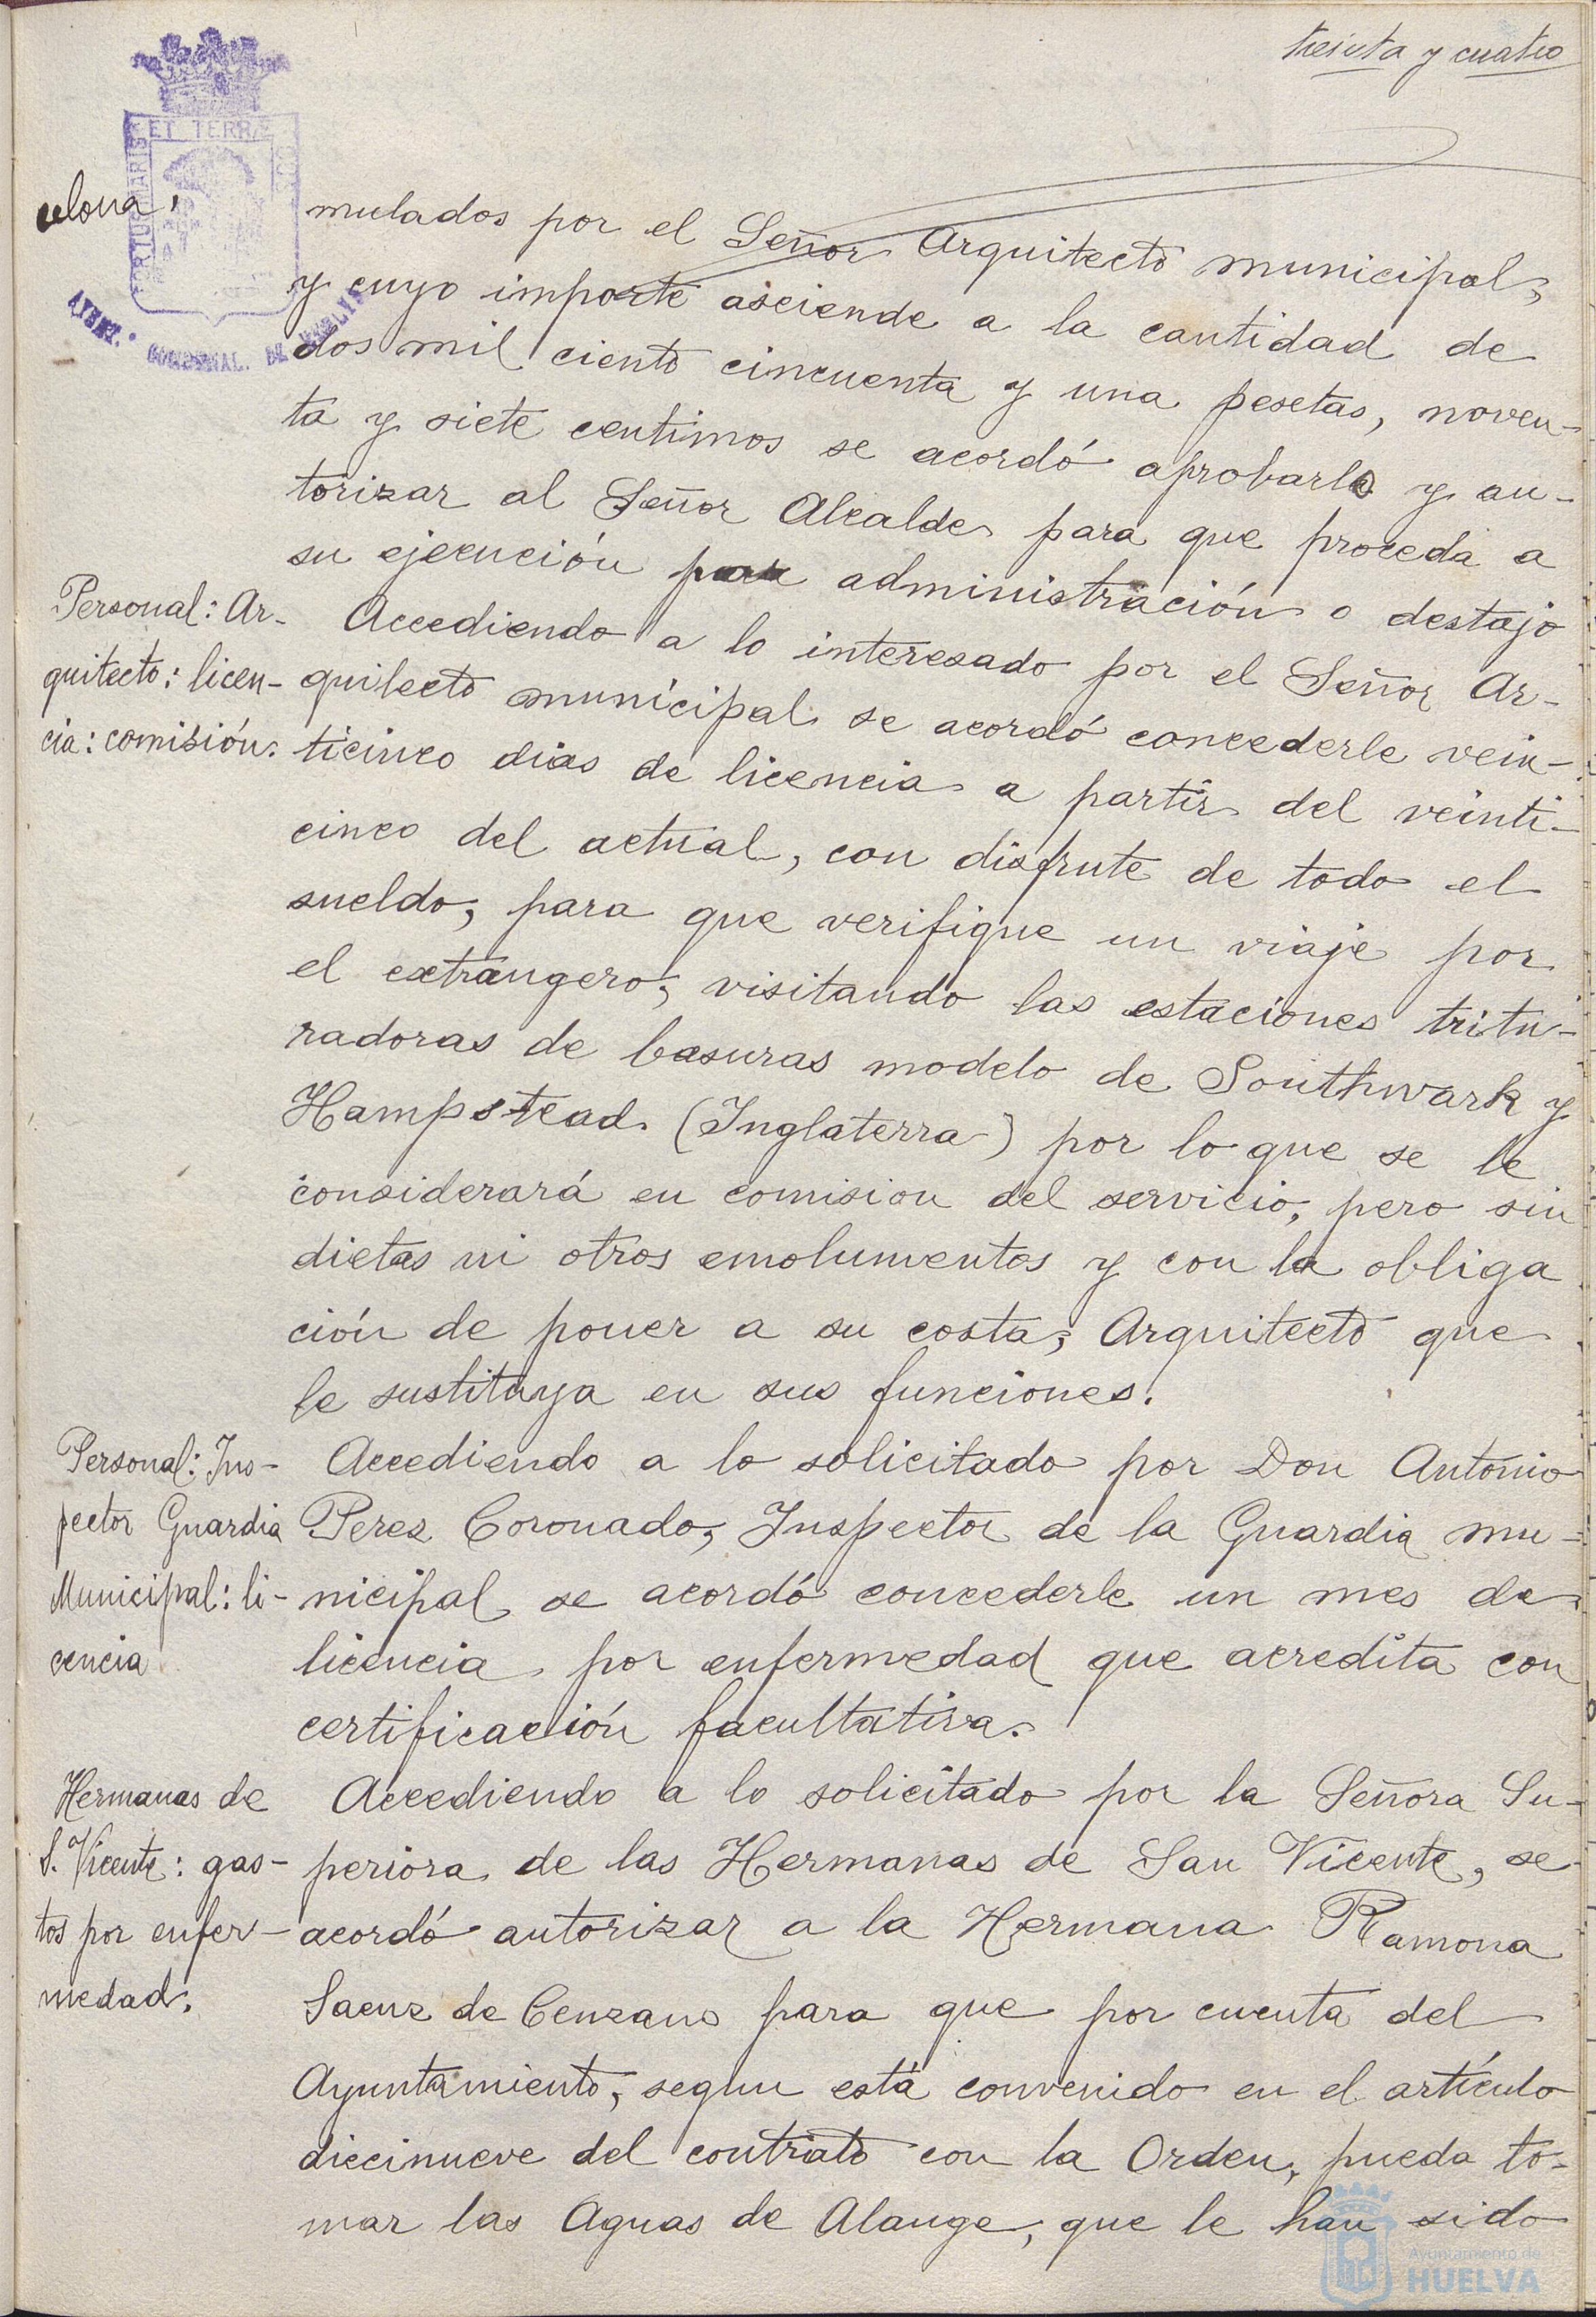 treinta y cuatro
ET TERRÆ
PORTUS MARIS
AYUNT.º CONSTNAL. DE HUELVA
mulados por el Señor Arquitecto municipal,
y cuyo importe asciende a la cantidad de
dos mil ciento cincuenta y una pesetas, noven-
ta y siete centimos se acordó aprobarlo y au-
torizar al Señor Alcalde para que proceda a
su ejecución por administración o destajo
Personal: Ar-
quitecto: licen-
cia: comisión.
Accediendo a lo interesado por el Señor Ar-
quitecto municipal se acordó concederle vein-
ticinco dias de licencia a partir del veinti-
cinco del actual, con disfrute de todo el
sueldo, para que verifique un viaje por
el extrangero, visitando las estaciones tritu-
radoras de basuras modelo de Southwark y
Hampstead (Inglaterra) por lo que se le
considerará en comision del servicio, pero sin
dietas ni otros emolumentos y con la obliga
ción de poner a su costa, Arquitecto que
le sustituya en sus funciones.
Personal: Ins-
pector Guardia
Municipal: li-
cencia
Accediendo a lo solicitado por Don Antonio
Perez Coronado, Inspector de la Guardia mu-
nicipal se acordó concederle un mes de
licencia por enfermedad que acredita con
certificación facultativa.
Hermanas de
S. Vicente: gas-
tos por enfer-
medad.
Accediendo a lo solicitado por la Señora Su-
periora de las Hermanas de San Vicente, se
acordó autorizar a la Hermana Ramona
Saenz de Cenzano para que por cuenta del
Ayuntamiento, segun está convenido en el artículo
diecinueve del contrato con la Orden, pueda to-
mar las Aguas de Alange, que le han sido
Ayuntamiento de
HUELVA